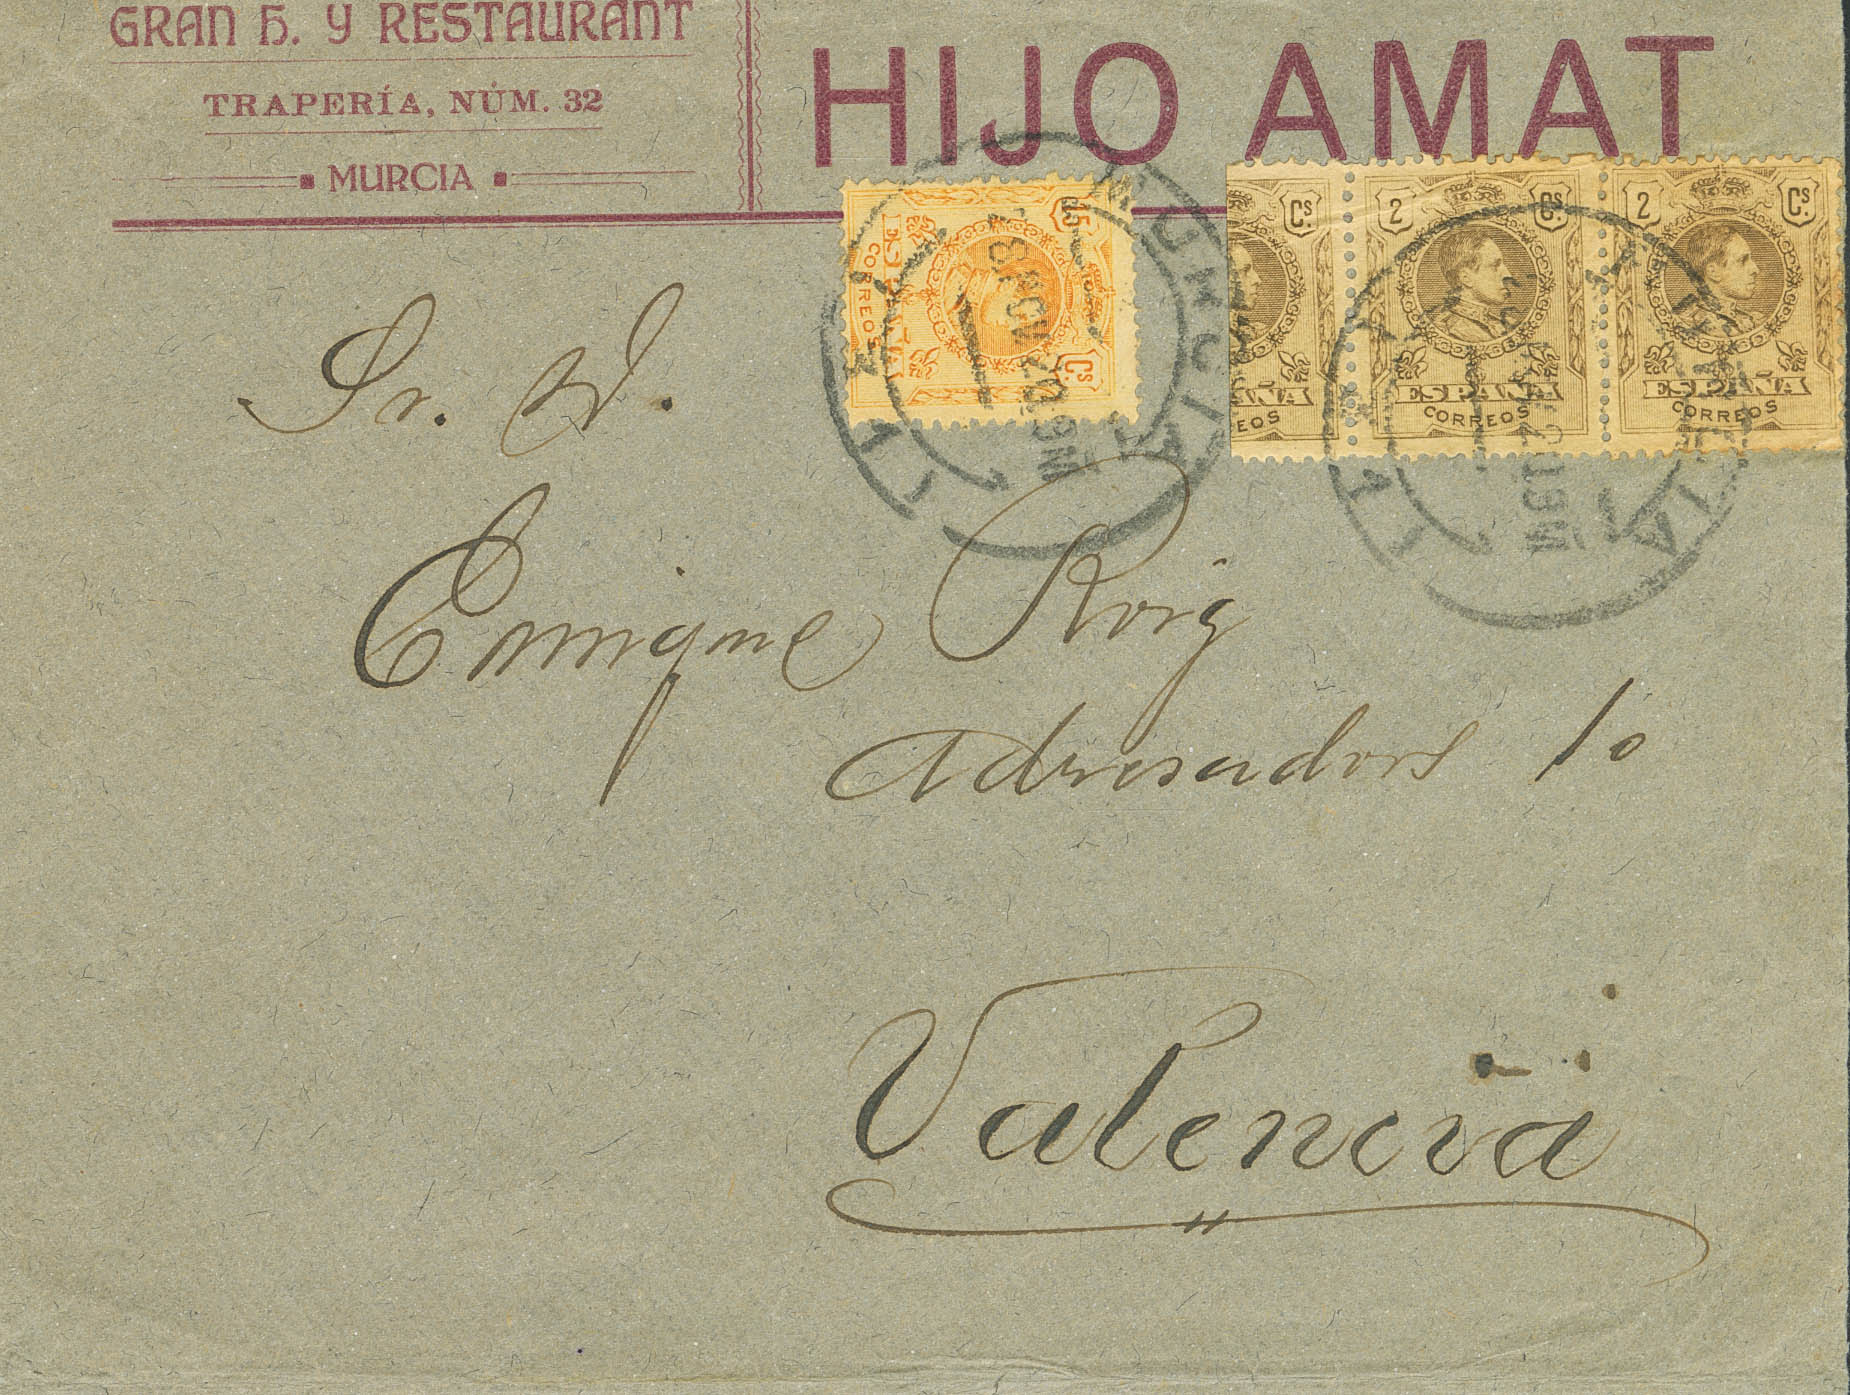 GRAN H. Y RESTAURANT
TRAPERÍA, NÚM. 32
MURCIA
HIJO AMAT
15 Cs
ESPAÑA
CORREOS
Cs.
AÑA
EOS
2 Cs.
ESPAÑA
CORREOS
2 Cs.
ESPAÑA
CORREOS
MURCIA
Sr. D.
Enrique Roig
Adresadors 10
Valencia